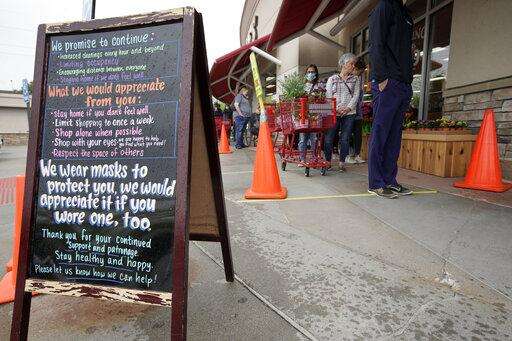 We promise to continue:
• Increased cleanings every hour and beyond
• Limiting occupancy
• Encouraging distance between everyone
• Staying home if we don't feel well
What we would appreciate
from you:
• Stay home if you don't feel well
• Limit shopping to once a week
• Shop alone when possible
• Shop with your eyes
• Respect the space of others
We wear masks to
protect you, we would
appreciate it if you
wore one, too.
Thank you for your continued
support and patronage.
Stay healthy and happy.
Please let us know how we can help!